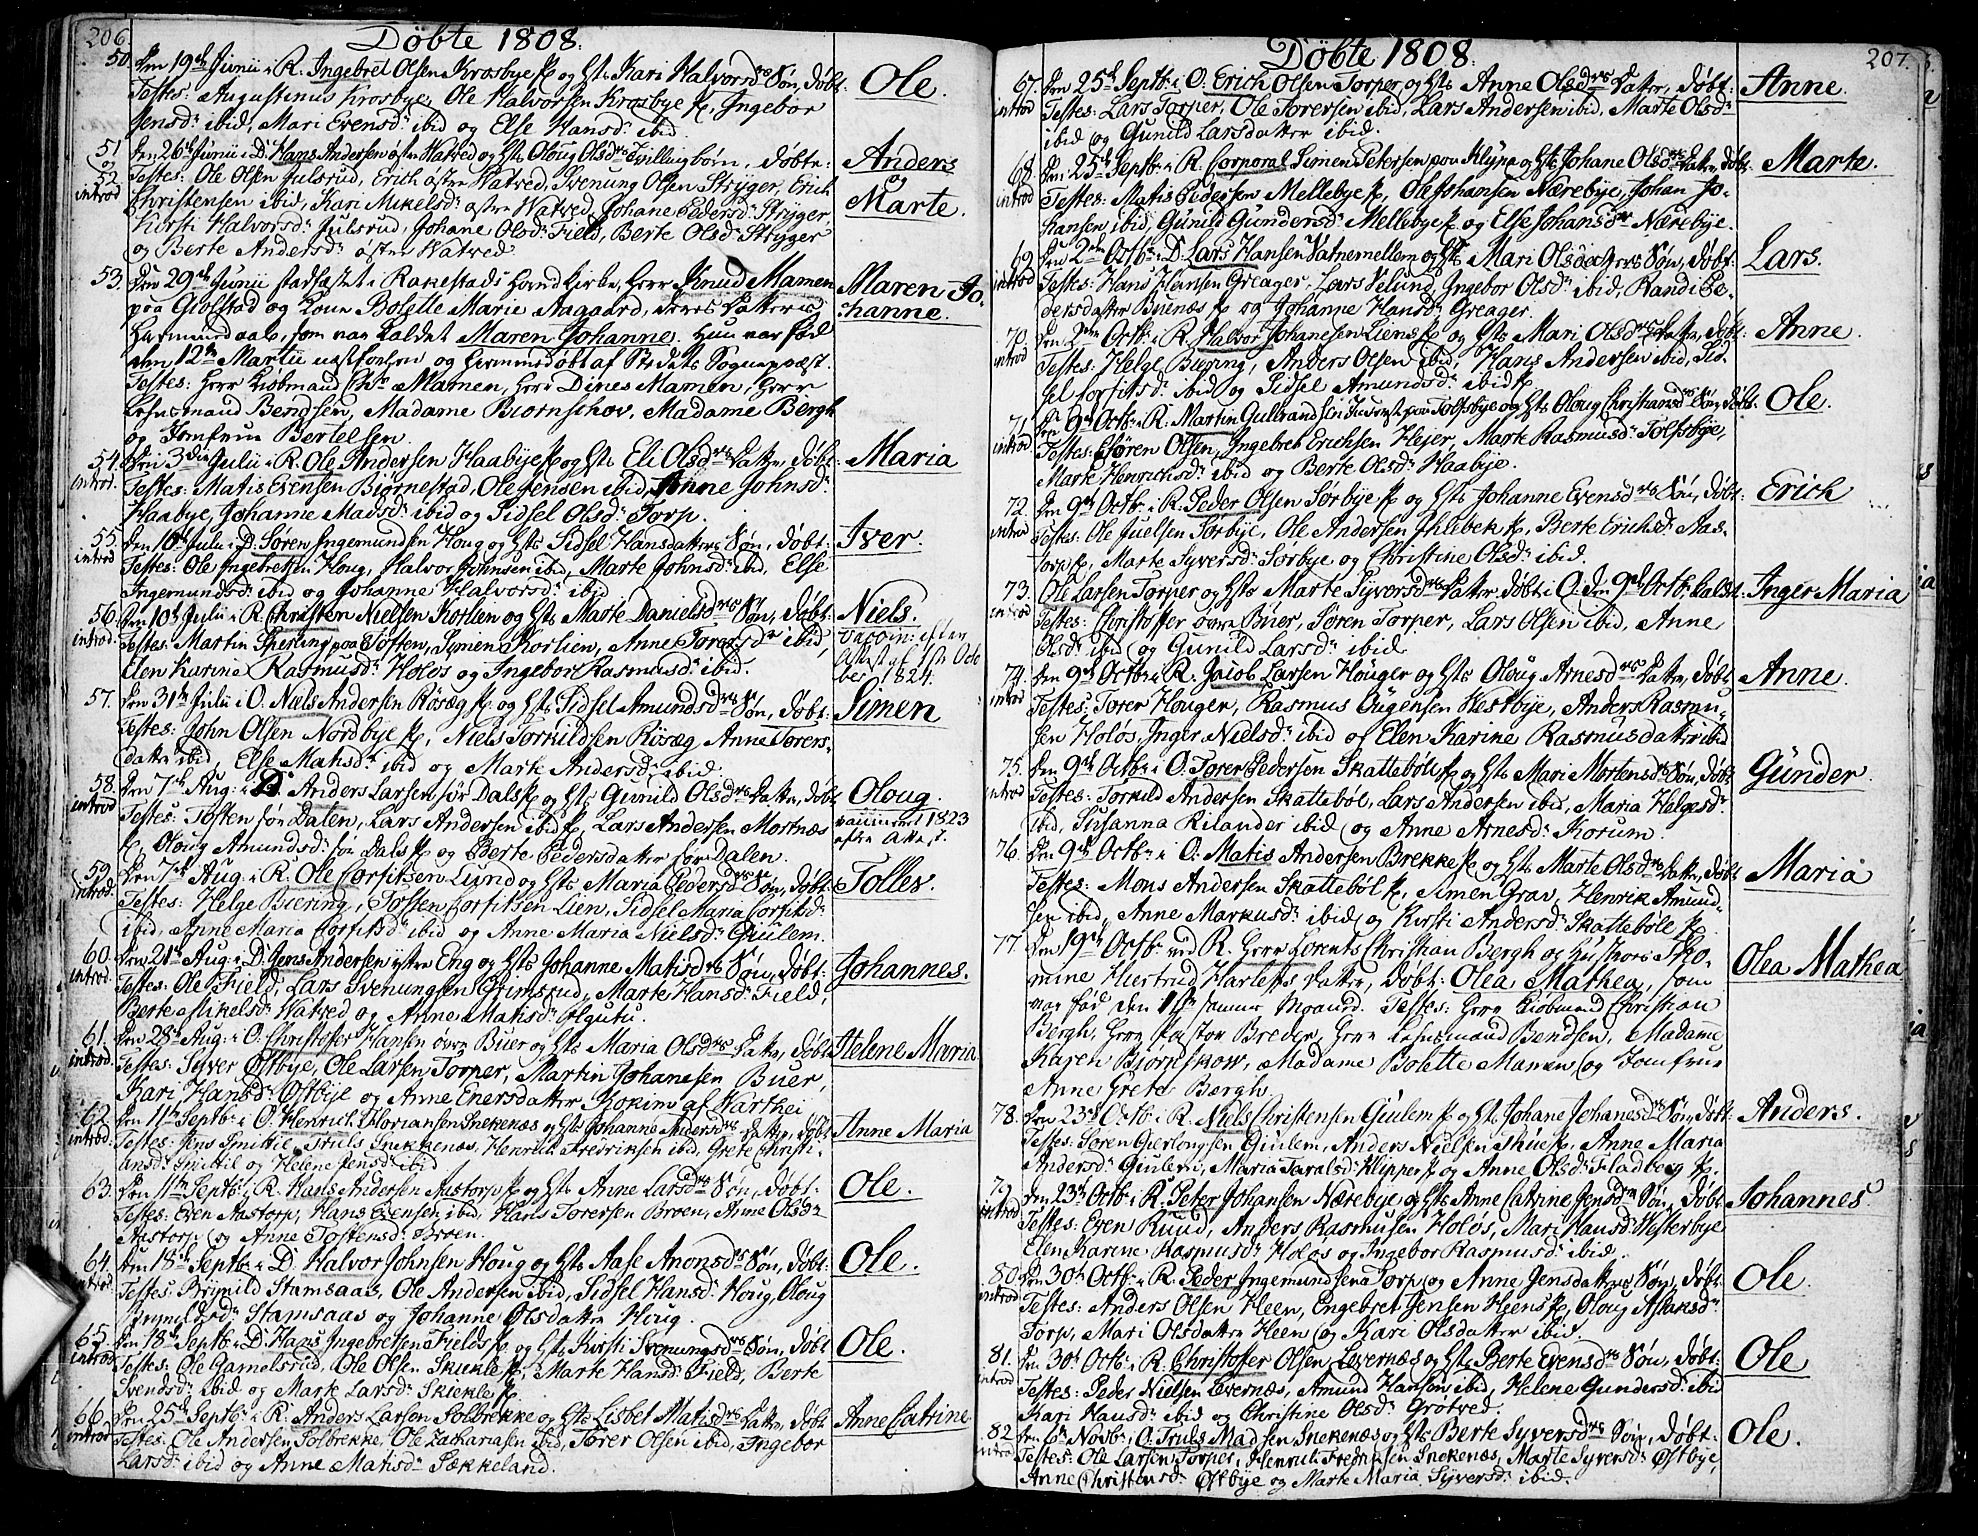 206
Döbte 1808.
50. Den 19de Junii i R. Ingebret Olsen Krosbye og Hst Kari Halvorsd. Søn, döbt: Ole.
Testes: Augustinus Krosbye, Ole Halvorsen Krosbye, Ingebor
Jensd. ibid, Mari Evensd. ibid og Else Hansd. ibid.
51 og 52 introd Den 26de Junii i D. Hans Andersen østre Watved og Hst Oloug Olsd. Tvillingbörn, döbte: Anders og Marte.
Testes: Ole Olsen Julsrud, Erich østre Watved, Svenung Olsen Stryger, Erich
Christensen ibid, Kari Mikelsd. østre Watved, Johane Pedersd. Stryger,
Kirsti Halvorsd. Julsrud, Johane Olsd. Field, Berte Olsd. Stryger
og Berte Andersd. østre Watved.
53. Den 29de Junii stadfæstet i Rakkestads Hovedkirke, Herr Knud Mamen Maren Jo-
paa Golfstad og Kone Bolette Marie Aagaard, deres Datter :hanne.
hjemmedaab, som var kaldet Maren Johanne. Hun var föd
den 12te Martii nestforhen og hjemmedöbt af Stedets Sognepræst.
Testes: Herr Kiöbmand Chr. Mamen, Herr Dines Mamen, Herr
Lehnsmand Bendsen, Madame Biornschov, Madame Bergh
og Jomfrue Bertelsen.
54. introd. Den 3die Julii i R. Ole Andersen Haabye og Hst Eli Olsd. Datter, döbt: Maria
Testes: Matis Evensen Biørnestad, Ole Jensen ibid, Anne Johnsd.
Haabye, Johanne Madsd. ibid og Sidsel Olsd. Torp.
55. introd Den 10de Julii i D. Søren Ingemundsen Houg og Hst Sidsel Hansdatters Søn, döbt: Iver.
Testes: Ole Ingebretsen Houg, Halvor Johnsen ibid, Marte Johnsd. ibid, Else
Ingemundsd. ibid og Johanne Halvorsd. ibid.
56. introd Den 10de Julii i R. Christen Nielsen Korlien og Hst Marte Danielsd. Søn, döbt: Niels.
Testes: Martin Sperling paa Toften, Symen Korlien, Anne Toresd. ibid, Vaccin: efter
Elen Karina Rasmusd. Holøs og Ingebor Rasmusd. ibid. Attest af 1ste Octo
ber 1824.
57. Den 31te Julii i O. Niels Andersen Røsæg og Hst Sidsel Amundsd. Søn, döbt: Simen
Testes: John Olsen Nordbye, Niels Torkildsen Röseg, Anne Torers-
datter ibid, Else Matisd. ibid og Marte Andersd. ibid.
58. introd Den 7de Aug: i D. Anders Larsen før Dals og Hst Gunild Olsd. Datter, döbt Oloug.
Testes: Tosten før Dalen, Lars Andersen ibid, Lars Andersen Mortnæs vaccineret 1823
Oloug Amundsd. før Dals og Berte Pedersdatter før Dalen. efter Attest.
59. introd. Den 7de Aug: i R. Ole Corfitsen Lund og Hst Maria Pedersd. Søn, döbt: Tolles.
Testes: Helge Buering, Tosten Corfitsen Lien, Sidsel Maria Corfitsd.
ibid, Anne Maria Corfitsd. ibid og Anne Maria Nielsd. Giulem.
60. introd. Den 21de Aug: i D. Jens Andersen ystre Eng og Hst Johanne Matisd. Søn, döbt: Johannes.
Testes: Ole Field, Lars Svenungsen Grimsrud, Marte Hansd. Field,
Berte Mikelsd. Watved og Anne Matisd.
61. introd. Den 28de Aug: i O. Christoffer Hansen øvre Buer og Hst Maria Olsd. Datter, döbt Helene Maria
Testes: Syver Østbye, Ole Larsen Torper, Martin Johanesen Buer,
Kari Hansd. Østbye og Anne Enersdatter Kokim af Warthei
62. introd. Den 11te Septb: i O. Henrich Floriansen Snekenæs og Hst Johanne Andersd. Datter, döbt Anne Maria
Testes: Jens Smitie, Truls Snekkenæs, Henrich Fredriksen ibid, Grete Christi-
ansd. Smitil og Helene Jensd. ibid
63. Den 11te Septb: i R. Hans Andersen Aastorp og Hst Anne Larsd. Søn, döbt: Ole.
Testes: Even Aastorp, Hans Evensen ibid, Hans Torersen Broen, Anne Olsd.
Aastorp og Anne Tostensd. Broen.
64. introd. Den 18de Septb: i D. Halvor Johnsen Houg og Hst Aase Anonsd. Søn, döbt: Ole.
Testes: Brynild Stamsaas, Ole Andersen ibid, Sidsel Hansd. Houg, Oloug
Brynildsd. Stamsaas og Johanne Olsdatter Houg.
65. introd Den 18de Septb: i D. Hans Ingebretsen Fields og Hst Kirsti Svenungsd. Søn, döbt Ole.
Testes: Ole Gamelsrud, Ole Olsen Skiekle, Marte Hansd. Field, Berte
Svendsd. ibid og Marte Larsd. Skiekle.
66 introd Den 25de Septb: i R. Anders Larsen Solbrekke og Hst Lisbet Matisd. Datter, döbt Anne Catrine
Testes: Ole Andersen Solbrekke, Ole Zachariasen ibid, Torer Olsen ibid, Ingebor
Larsd. ibid og Anne Matisd. Sækkeland.
207.
Döbte 1808.
67. introd Den 25de Septb: i O. Erich Olsen Torper og Hst Anne Olsd. Datter, döbt Anne.
Testes: Lars Torper, Ole Torersen ibid, Lars Andersen ibid, Marte Olsd.
ibid og Gunild Larsdatter ibid.
68. introd Den 25de Septb: i R. Corporal Simen Petersen paa Klypa og Hst Johane Olsd. Datter, döbt Marte.
Testes: Matis Pedersen Mellebye, Ole Johansen Nærebye, Johan Jo-
hansen ibid, Gunild Gundersd. Mellebye og Else Johansd. Nærebye.
69. introd Den 2den Octb: i D. Lars Hansen Vatnemellem og Hst Mari Olsdatters Søn, döbt: Lars.
Testes: Hans Hansen Greager, Lars Velund, Ingebor Olsd. ibid, Randi Pe-
dersdatter Buenes og Johanne Hansd. Greager.
70. introd Den 2den Octb: i R. Halvor Johanesen Lens og Hst Mari Olsd. Datter, döbt: Anne
Testes: Helge Buering, Anders Olsen ibid, Hans Andersen ibid, Sid-
sel Corfitsd. ibid og Sidsel Amundsd. ibid.
71. introd Den 9de Octb: i R. Martin Gulbrandsen Inderst paa Tolfsbye og Hst Oloug Christiansd. Søn, döbt: Ole.
Testes: Søren Olsen, Ingebret Erichsen Hejer, Marte Rasmusd. Tolfsbye,
Marte Henrichsd. ibid og Berte Olsd. Haabye.
72. introd Den 9de Octb: i R. Peder Olsen Sørbye og Hst Johanne Evensd. Søn, döbt: Erich
Testes: Ole Juelsen Sørbye, Ole Andersen Ihlebek, Berte Erichsd. Aas-
torp, Marte Syversd. Sørbye og Christine Olsd. ibid.
73. introd Ole Larsen Torper og Hst Marte Syversd. Datter döbt i O. den 9de Octb: kaldet: Inger Maria
Testes: Christoffer øvre Buer, Søren Torper, Lars Olsen ibid, Anne
Olsd. ibid og Gunild Larsd. ibid.
74. introd Den 9de Octb: i R. Jacob Larsen Houger og Hst Oloug Arnesd. Datter, döbt Anne.
Testes: Torer Houger, Rasmus Eugensen Westbye, Anders Rasmu-
sen Holøs, Inger Nielsd. ibid og Elen Karine Rasmusdatter ibid
75. introd Den 9de Octb: i O. Torer Pedersen Skattebøl og Hst Mari Mortensd. Søn, döbt Günder.
Testes: Torkild Andersen Skattebøl, Lars Andersen ibid, Maria Helgesd.
ibid, Susanna Rilander ibid og Anne Arnesd. Korum.
76. Den 9de Octb: i O. Matis Andersen Brekke og Hst Marte Olsd. Datter, döbt Maria
Testes: Mons Andersen Skattebøl, Simen Grav, Henrik Amund-
sen ibid, Anne Markusd. ibid, og Kirsti Andersd. Skattebøle.
77. Den 19de Octb: ved R. Herr Lorents Christian Bergh og Hustrue Tho- Olea Mathea
mine Hiertrud Harleffs Datter, döbt: Olea Mathea, som
var föd den 11te samme Maaned. Testes: Herr Kiöbmand Christian
Bergh, Herr Pastor Breder, Herr Lehnsmand Bendsen, Madame
Karen Bjornskow, Madame Bolette Mamen og Jomfrue
Anne Grete Bergh.
78. Den 23de Octb: i R. Niels Christensen Giulem og Hst Johane Johanesd. Søn, döbt: Anders.
Testes: Søren Gierlougsen Giulem, Anders Nielsen Skue, Anne Maria
Andersd. Giulem, Maria Taralsd. Klipper og Anne Olsd. Fladberg.
79. introd Den 23de Octb: i R. Peter Johansen Nærebye og Hst Anne Catrine Jensd. Søn, döbt Johannes
Testes: Even Ruud, Anders Rasmusen Holøs, Mari Hansd. Westerbye
Elen Karine Rasmusd. Holøs og Ingebor Rasmusd. ibid.
80 introd Den 30te Octb: i R. Peder Ingemundsen Torp og Anne Jensdatters Søn, döbt: Ole
Testes: Anders Olsen Heen, Engebret Jensen Heens, Oloug Aslaksd.
Torp, Mari Olsdatter Heen og Kari Olsdatter ibid.
81. introd Den 30te Octb: i R. Christoffer Olsen Levernæs og Hst Berte Evensd. Søn, döbt: Ole
Testes: Peder Nielsen Levernæs, Amund Hansen ibid, Helene Gundersd. ibid
Kari Hansd. ibid og Christine Olsd. Grotved.
82 introd Den 6te Novb: i O. Truls Madsen Snekenæs og Hst Berte Syversd. Søn, döbt: Ole.
Testes: Ole Larsen Torper, Henrich Fredriksen Snekenæs, Marte Syversd. Østbye,
Anne Christensd. Østbye og Marte Maria Syversd. ibid.